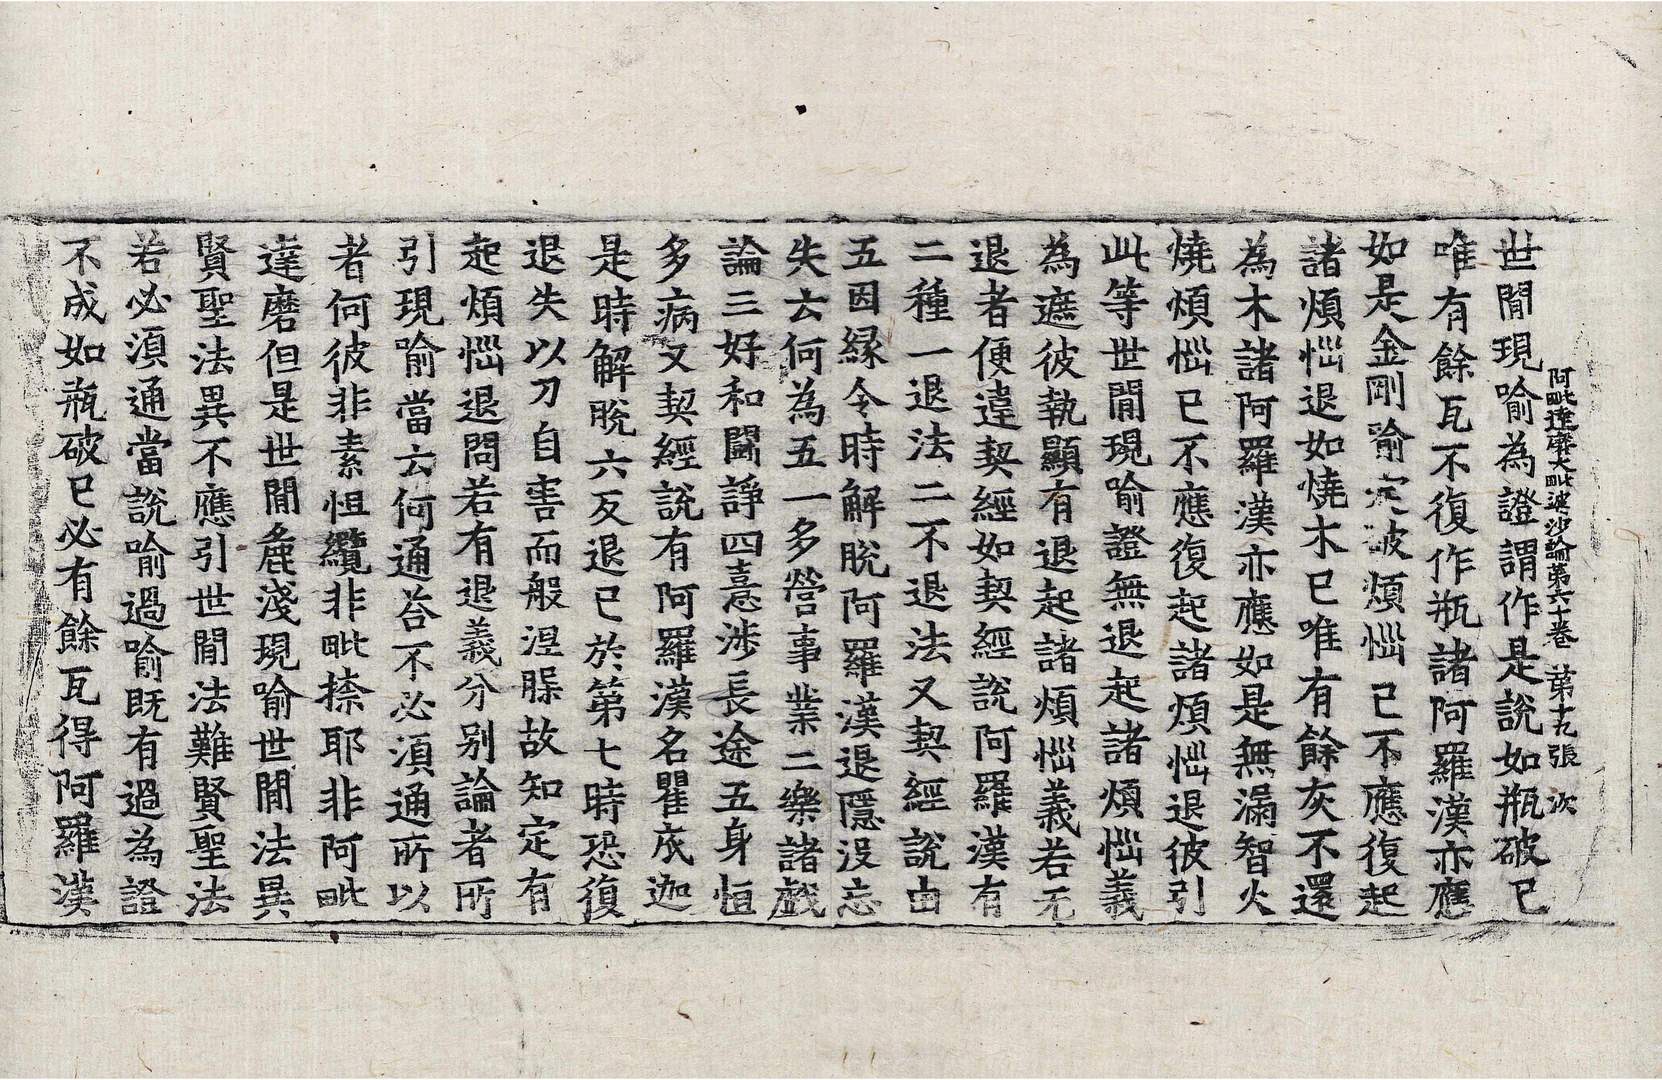 阿毗達磨大毗婆沙論第六十卷 第十九張 次
世間現喻為證謂作是說如瓶破已
唯有餘瓦不復作瓶諸阿羅漢亦應
如是金剛喻定破煩惱已不應復起
諸煩惱退如燒木已唯有餘灰不還
為木諸阿羅漢亦應如是無漏智火
燒煩惱已不應復起諸煩惱退彼引
此等世間現喻證無退起諸煩惱義
為遮彼執顯有退起諸煩惱義若无
退者便違契經如契經說阿羅漢有
二種一退法二不退法又契經說由
五因緣令時解脫阿羅漢退隱沒忘
失云何為五一多營事業二樂諸戲
論三好和鬪諍四憙涉長途五身恒
多病又契經說有阿羅漢名瞿底迦
是時解脫六反退已於第七時恐復
退失以刀自害而般涅槃故知定有
起煩惱退問若有退義分別論者所
引現喻當云何通荅不必湏通所以
者何彼非素怛纜非毗捺耶非阿毗
達磨但是世間麁淺現喻世間法異
賢聖法異不應引世間法難賢聖法
若必湏通當說喻過喻既有過為證
不成如瓶破已必有餘瓦得阿羅漢